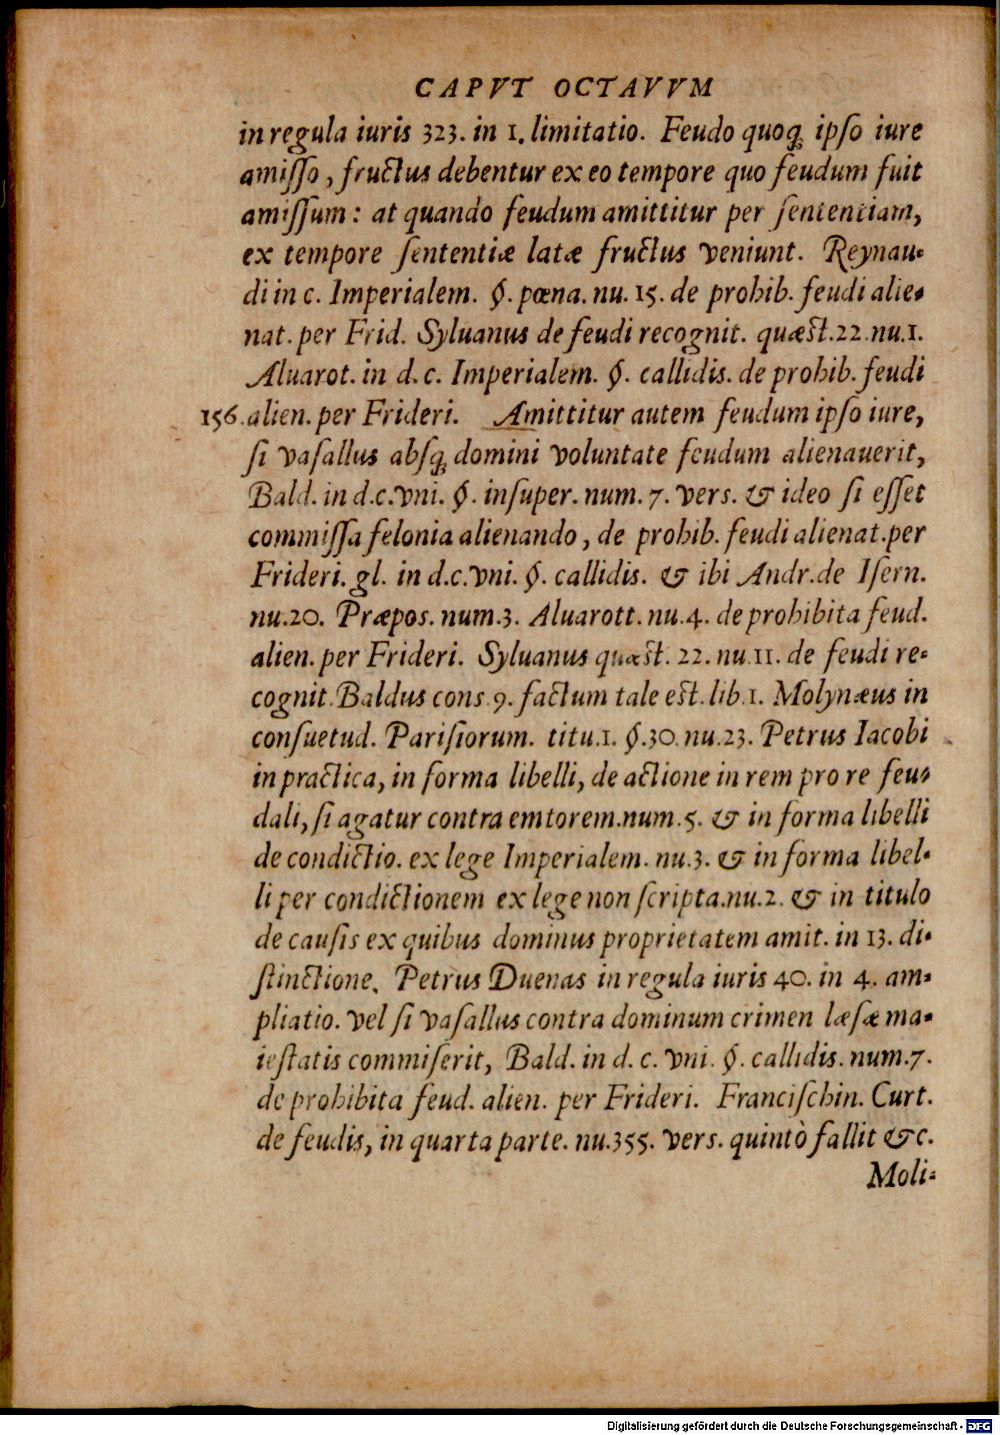 CAPVT OCTAVVM
in regula iuris 323. in 1. limitatio. Feudo quoq; ipso iure
amisso, fructus debentur ex eo tempore quo feudum fuit
amissum: at quando feudum amittitur per sententiam,
ex tempore sententiæ latæ fructus veniunt. Reynau-
di in c. Imperialem. §. pœna. nu. 15. de prohib. feudi alie-
nat. per Frid. Syluanus de feudi recognit. quæst. 22. nu. 1.
Aluarot. in d. c. Imperialem. §. callidis. de prohib. feudi
156. alien. per Frideri. Amittitur autem feudum ipso iure,
si vasallus absq; domini voluntate feudum alienauerit,
Bald. in d.c. vni. §. insuper. num. 7. vers. & ideo si esset
commissa felonia alienando, de prohib. feudi alienat. per
Frideri. gl. in d.c. vni. §. callidis. & ibi Andr. de Isern.
nu. 20. Præpos. num. 3. Aluarott. nu. 4. de prohibita feud.
alien. per Frideri. Syluanus quæst. 22. nu. 11. de feudi re-
cognit. Baldus cons. 9. factum tale est. lib. 1. Molynæus in
consuetud. Parisiorum. titu. 1. §. 30. nu. 23. Petrus Iacobi
in practica, in forma libelli, de actione in rem pro re feu-
dali, si agatur contra emtorem. num. 5. & in forma libelli
de condictio. ex lege Imperialem. nu. 3. & in forma libel-
li per condictionem ex lege non scripta. nu. 2. & in titulo
de causis ex quibus dominus proprietatem amit. in 13. di-
stinctione. Petrus Duenas in regula iuris 40. in 4. am-
pliatio. vel si vasallus contra dominum crimen læsæ ma-
iestatis commiserit, Bald. in d. c. vni. §. callidis. num. 7.
de prohibita feud. alien. per Frideri. Francischin. Curt.
de feudis, in quarta parte. nu. 355. vers. quintò fallit &c.
Moli-
Digitalisierung gefördert durch die Deutsche Forschungsgemeinschaft - DFG